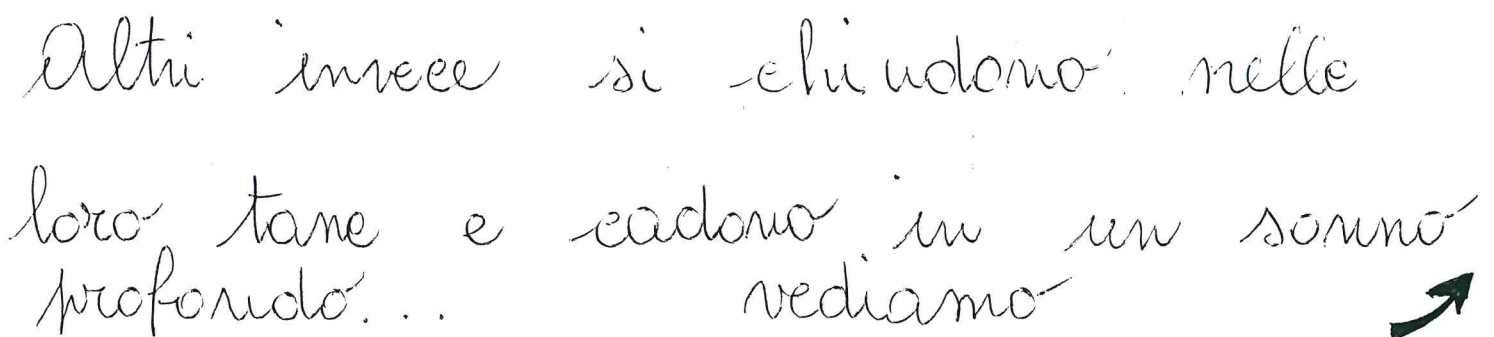 Altri invece si chiudono nelle
loro tane e cadono in un sonno
profondo... vediamo